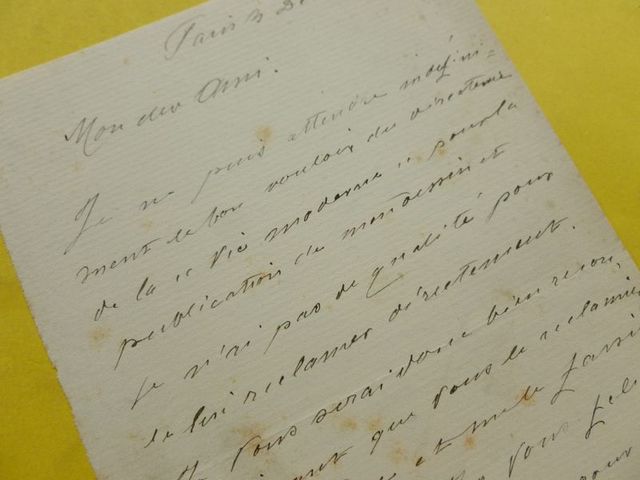 Paris 3 D
Mon cher Ami.
Je ne puis attendre indéfini-
ment le bon vouloir du directeur
de la " Vie moderne " pour la
publication de mon dessin et
je n'ai pas de qualité pour
le lui réclamer directement.
Je vous serai donc bien recon,
que vous le réclamiez
et me le fassi
vous
pour